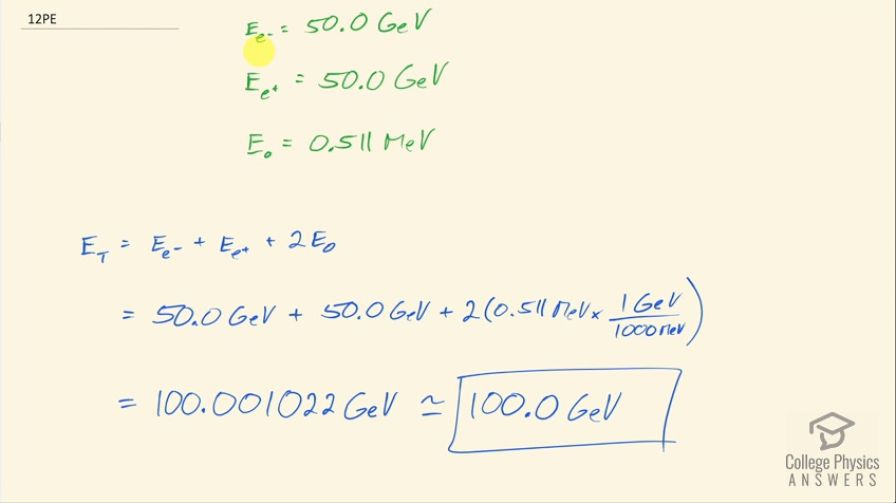 12PE
E_e- = 50.0 GeV
E_e+ = 50.0 GeV
E_0 = 0.511 MeV
E_T = E_e- + E_e+ + 2E_0
= 50.0 GeV + 50.0 GeV + 2(0.511 MeV × 1 GeV / 1000 MeV)
= 100.001022 GeV ≃ 100.0 GeV
College Physics
ANSWERS